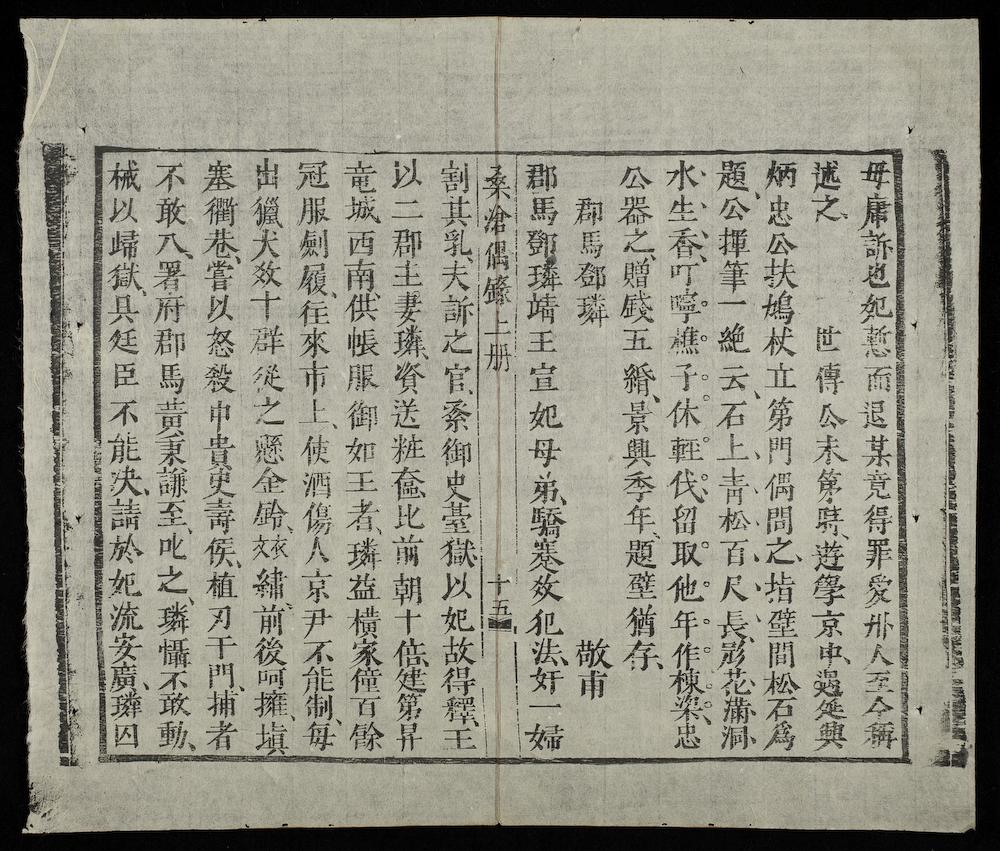 毋庸訴也妃慙而退某竟得罪愛州人至今稱
述之　世傳公未第時遊學京中遇延興
炳忠公扶鳩杖立第門偶問之指壁間松石爲
題公揮筆一絶云石上青松百尺長影花滿洞
水生香叮嚀樵子休輕伐留取他年作棟梁忠
公器之贈錢五緡景興季年題壁猶存
郡馬鄧璘　敬甫
郡馬鄧璘靖王宣妃母弟驕蹇效犯法奸一婦
桑滄偶錄上册　十五
割其乳夫訴之官系御史臺獄以妃故得釋王
以二郡主妻璘資送粧奩比前朝十倍建第昇
竜城西南供帳服御如王者璘益橫家僮百餘
冠服劍履往來市上使酒傷人京尹不能制每
出獵犬效十群從之懸金鈴衣文繡前後呵擁塡
塞衢巷嘗以怒殺中貴史壽侯植刃干門捕者
不敢入署府郡馬黃秉謙至叱之璘懾不敢動
械以歸獄具廷臣不能决請於妃流安廣璘囚